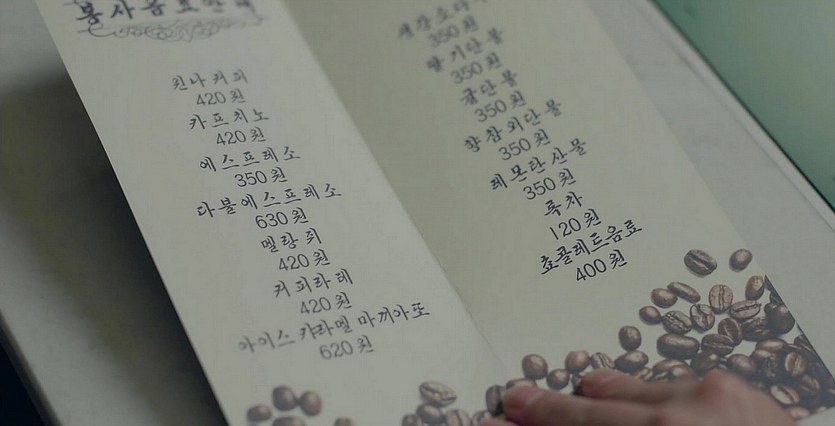 봉사음료안내
윈나커피
420원
카프치노
420원
에스프레소
350원
다블에스프레소
630원
멜랑쥐
420원
커피라떼
420원
아이스 카라멜 마끼아또
620원
350원
딸기단물
350원
귤단물
350원
향참외단물
350원
레몬탄산물
350원
록차
120원
쵸콜레트음료
400원